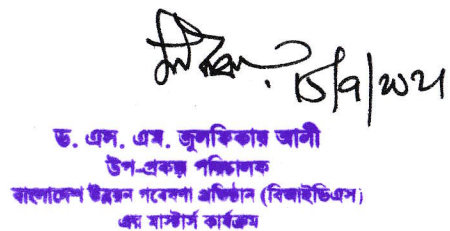 ১৫/৭/২০২৫
ড. এস. এম. জুলফিকার আলী
উপ-প্রকল্প পরিচালক
বাংলাদেশ উন্নয়ন গবেষণা প্রতিষ্ঠান (বিআইডিএস)
এর মাস্টার্স কার্যক্রম